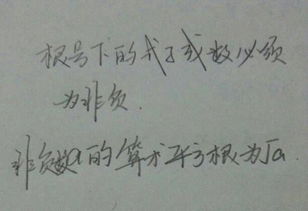 根号下的式子或数必须
为非负.
非负数a的算术平方根为√a.